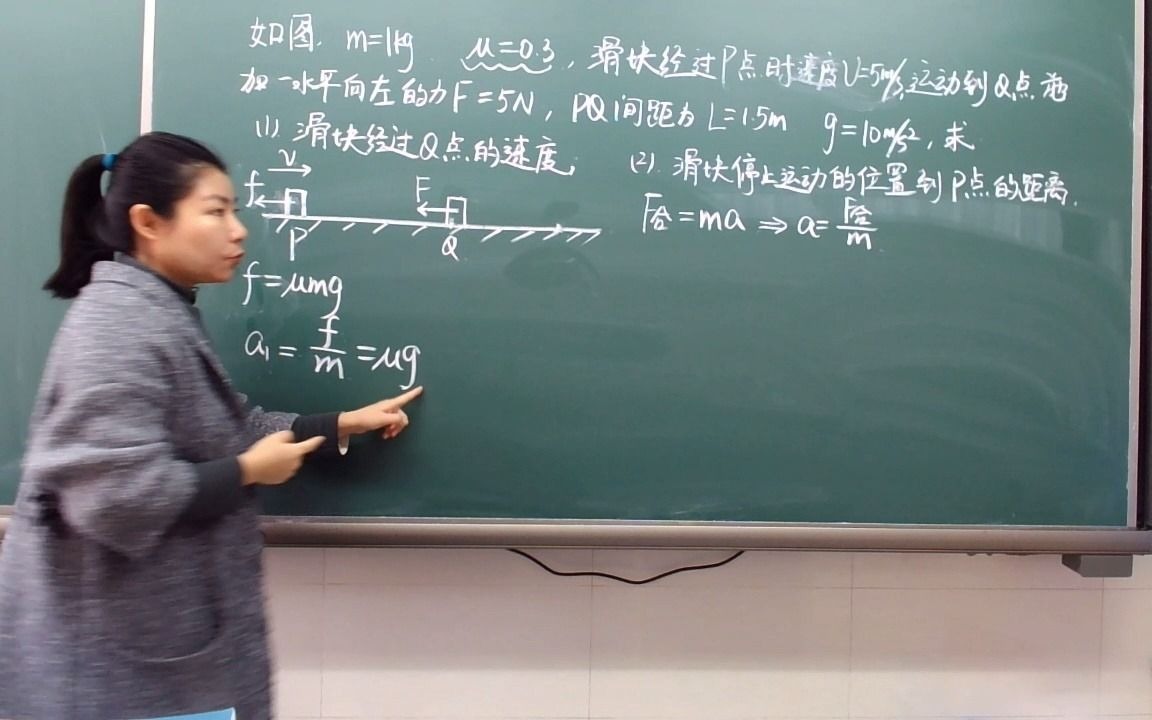 如图. m=1kg μ=0.3, 滑块经过P点时速度V=5m/s,运动到Q点施
加一水平向左的力F=5N, PQ间距为L=1.5m g=10m/s², 求
(1). 滑块经过Q点的速度.
(2). 滑块停止运动的位置到P点的距离.
V
f
F
P
Q
F合=ma ⇒ a=F合/m
f=μmg
a₁=f/m=μg